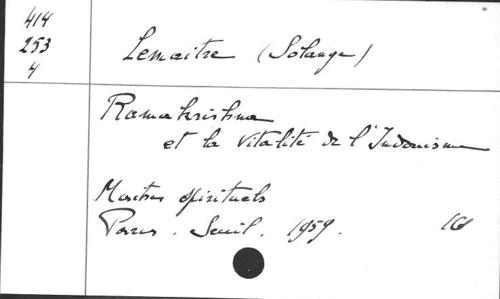 414
253
4
Lemaitre (Solange)
Ramakrishna
et la vitalité de l'Indouisme
Maitres spirituels
Paris. Seuil. 1959.